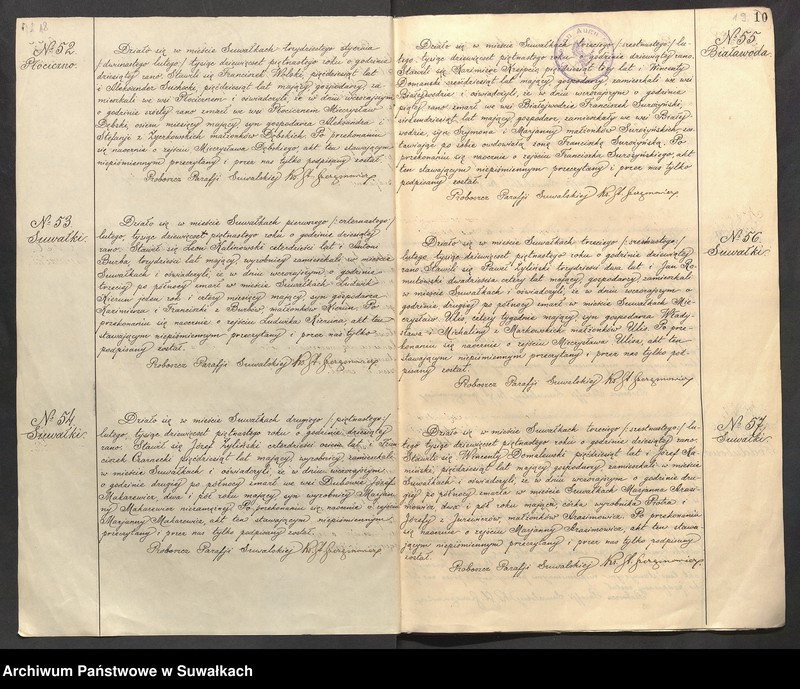 № 52
Płociczno.
Działo się w mieście Suwałkach trzydziestego stycznia
/:dwunastego lutego:/ tysiąc dziewięćset piętnastego roku o godzinie
dziesiątej rano. Stawili się Franciszek Wolski, pięćdziesiąt lat
i Aleksander Suchocki, pięćdziesiąt lat mający, gospodarze, za-
mieszkali we wsi Płocicznem i oświadczyli, że w dniu wczorajszym
o godzinie szóstej rano zmarł we wsi Płocicznem Mieczysław
Dębski, osiem miesięcy mający, syn gospodarza Aleksandra i
Stefanji z Życzkowskich małżonków Dębskich. Po przekonaniu
się naocznie o zejściu Mieczysława Dębskiego, akt ten stawającym
niepiśmiennym przeczytany i przez nas tylko podpisany został.
Proboszcz Parafji Suwalskiej Ks. St.
№ 53.
Suwałki.
Działo się w mieście Suwałkach pierwszego /:czternastego:/
lutego, tysiąc dziewięćset piętnastego roku o godzinie dziesiątej
rano. Stawili się Leon Kalinowski czterdzieści lat i Antoni
Buzka, trzydzieści lat mający, wyrobnicy, zamieszkali w mieście
Suwałkach i oświadczyli, że w dniu wczorajszym o godzinie
trzeciej po północy zmarł w mieście Suwałkach Ludwik
jeden rok i cztery miesiące mający, syn gospodarza
Kazimierza i Franciszki z Buzków małżonków Po
przekonaniu się naocznie o zejściu Ludwika akt ten
stawającym niepiśmiennym przeczytany i przez nas tylko
podpisany został.
Proboszcz Parafji Suwalskiej Ks. St.
№ 54.
Suwałki.
Działo się w mieście Suwałkach drugiego /:piętnastego:/
lutego, tysiąc dziewięćset piętnastego roku o godzinie dziesiątej
rano. Stawili się Józef Żyliński czterdzieści osiem lat i Fran-
ciszek Czarnecki pięćdziesiąt lat mający, wyrobnicy, zamieszkali
w mieście Suwałkach i oświadczyli, że w dniu wczorajszym
o godzinie drugiej po północy zmarł we wsi Dubowie Józef
Makarewicz, dwa i pół roku mający, syn wyrobnicy Marjan-
ny Makarewicz niezamężnej. Po przekonaniu się naocznie o zejściu
Makarewicz, akt ten stawającym niepiśmiennym
przeczytany i przez nas tylko podpisany został.
Proboszcz Parafji Suwalskiej Ks. St.
10
№ 55.
Białawoda.
Działo się w mieście Suwałkach trzeciego /:szesnastego:/ lu-
tego, tysiąc dziewięćset piętnastego roku o godzinie dziesiątej rano.
Stawili się Kazimierz pięćdziesiąt trzy lat i Wincenty
Domoński sześćdziesiąt lat mający, gospodarze, zamieszkali we wsi
Białejwodzie i oświadczyli, że w dniu wczorajszym o godzinie
piątej rano zmarł we wsi Białejwodzie Franciszek Surażyński,
siedemdziesiąt lat mający, gospodarz, zamieszkały we wsi Białej-
wodzie, syn Szymona i Marjanny małżonków Surażyńskich, zo-
stawiając po sobie owdowiałą żonę Franciszkę Surażyńską. Po
przekonaniu się naocznie o zejściu Franciszka Surażyńskiego, akt
ten stawającym niepiśmiennym przeczytany i przez nas tylko
podpisany został.
Proboszcz Parafji Suwalskiej Ks. St.
№ 56.
Suwałki.
Działo się w mieście Suwałkach trzeciego /:szesnastego:/
lutego, tysiąc dziewięćset piętnastego roku o godzinie dziesiątej
rano. Stawili się Paweł Żyliński trzydzieści dwa lat i Jan Ro-
mutowski dwadzieścia cztery lat mający, gospodarze, zamieszkali
w mieście Suwałkach i oświadczyli, że w dniu wczorajszym o
godzinie drugiej po północy zmarł w mieście Suwałkach Mie-
czysław Ulis, cztery tygodnie mający, syn gospodarza Włady-
sława i Michaliny z Markowskich małżonków Ulis. Po prze-
konaniu się naocznie o zejściu Mieczysława Ulisa, akt ten
stawającym niepiśmiennym przeczytany i przez nas tylko pod-
pisany został.
Proboszcz Parafji Suwalskiej Ks. St.
№ 57.
Suwałki.
Działo się w mieście Suwałkach trzeciego /:szesnastego:/ lu-
tego, tysiąc dziewięćset piętnastego roku o godzinie dziesiątej rano.
Stawili się Wincenty Domalewski pięćdziesiąt lat i Józef Ka-
pięćdziesiąt lat mający, gospodarze, zamieszkali w mieście
Suwałkach i oświadczyli, że w dniu wczorajszym o godzinie dru-
giej po północy zmarła w mieście Suwałkach Marjanna Krasi-
mowicz, dwa i pół roku mająca, córka wyrobnika Piotra i
Józefy z małżonków Po przekonaniu
się naocznie o zejściu Marjanny akt ten stawa-
jącym niepiśmiennym przeczytany i przez nas tylko podpisany
został.
Proboszcz Parafji Suwalskiej Ks. St.
Archiwum Państwowe w Suwałkach